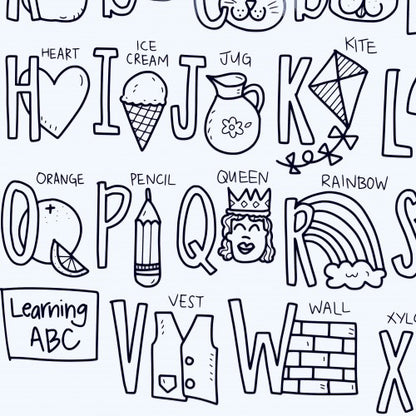 HEART
ICE
CREAM
JUG
KITE
H I J K L
ORANGE
PENCIL
QUEEN
RAINBOW
O P Q R S
Learning
ABC
VEST
WALL
XYLO
V W X